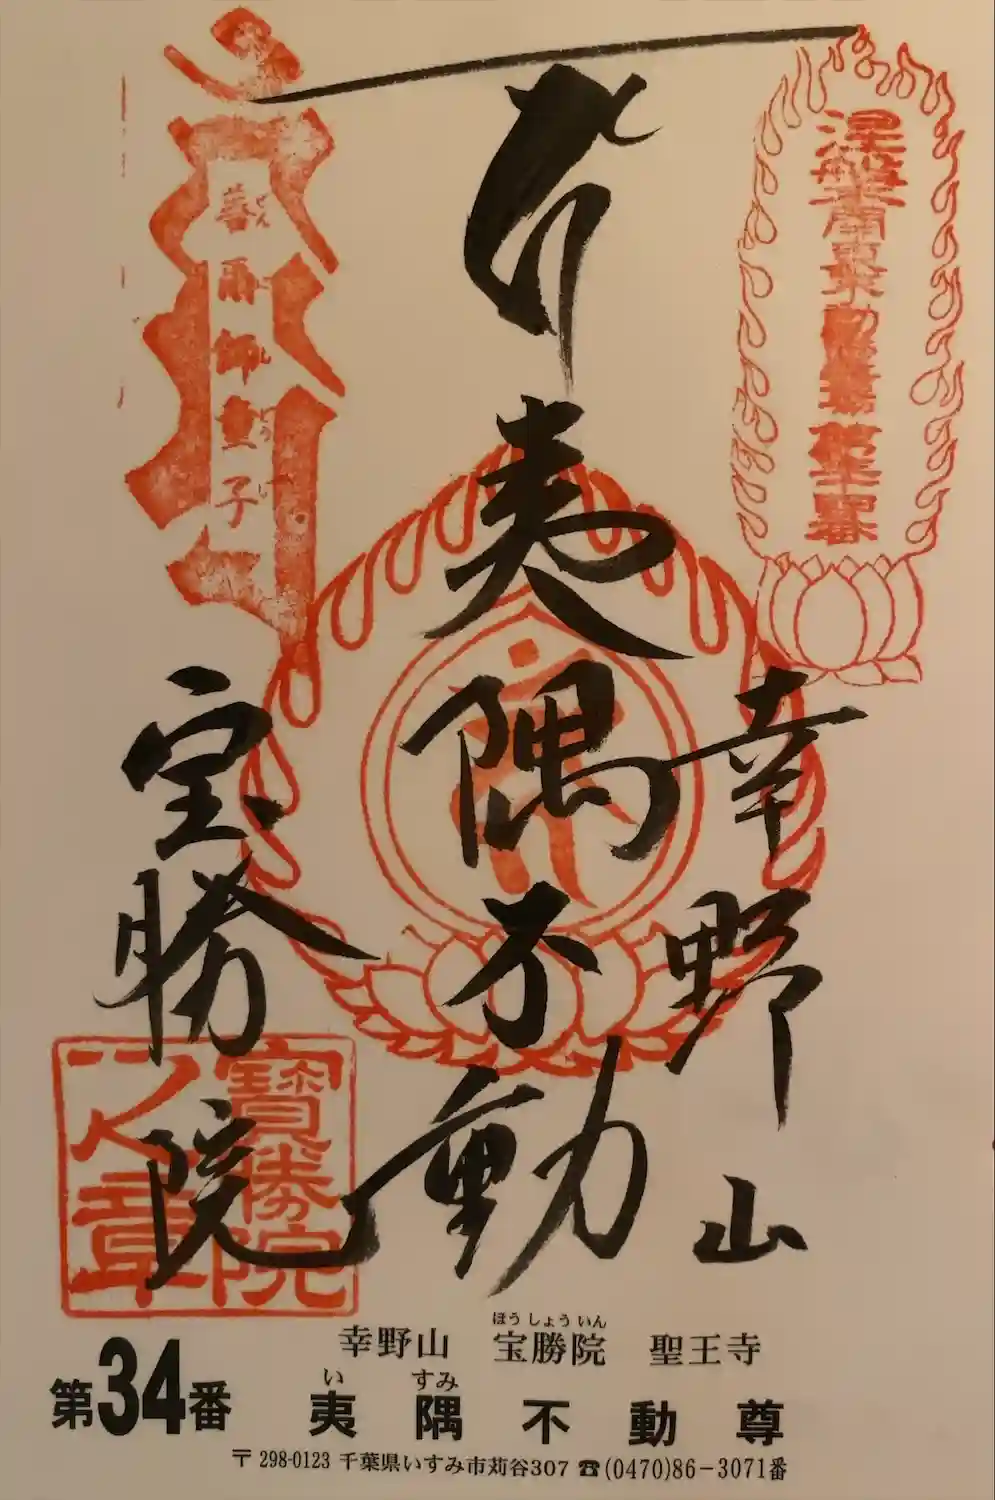 涅槃
幸野山
夷隅不動
宝勝院
善爾師童子
寶勝院
之章
ほうしょういん
幸野山 宝勝院 聖王寺
い すみ
第34番 夷隅不動尊
〒298-0123 千葉県いすみ市苅谷307 ☎(0470)86-3071番